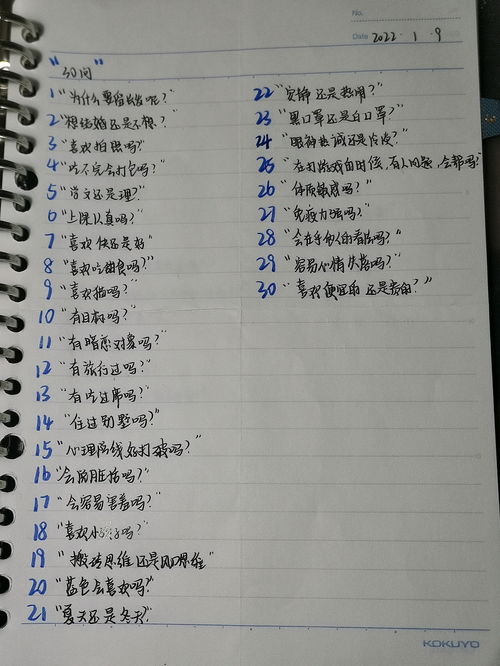 No.
Date 2022 1 9
"30问"
1 "为什么要留长发呢?"
2 "想结婚还是不想?"
3 "喜欢拍照吗?"
4 "吃不完会打包吗?"
5 "学文还是理?"
6 "上课认真吗?"
7 "喜欢快还是好"
8 "喜欢吃甜食吗?"
9 "喜欢猫吗?"
10 "有目标吗?"
11 "有暗恋对象吗?"
12 "有旅行过吗?"
13 "有吃过席吗?"
14 "住过别墅吗?"
15 "心理防线好打破吗?"
16 "会说脏话吗?"
17 "会容易害羞吗?"
18 "喜欢小孩子吗?"
19 "搬砖思维还是风口思维"
20 "蓝色会喜欢吗?"
21 "夏天还是冬天?"
22 "安静还是热闹?"
23 "黑口罩还是白口罩?"
24 "眼神热诚还是冷淡?"
25 "在打游戏的时候,有人问题,会帮吗?"
26 "体质敏感吗?"
27 "免疫力强吗?"
28 "会在乎别人的看法吗?"
29 "容易心情失落吗?"
30 "喜欢便宜的还是贵的?"
KOKUYO